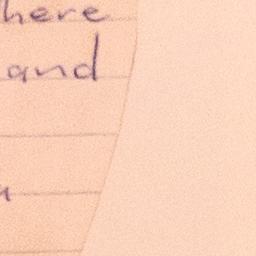 here
and